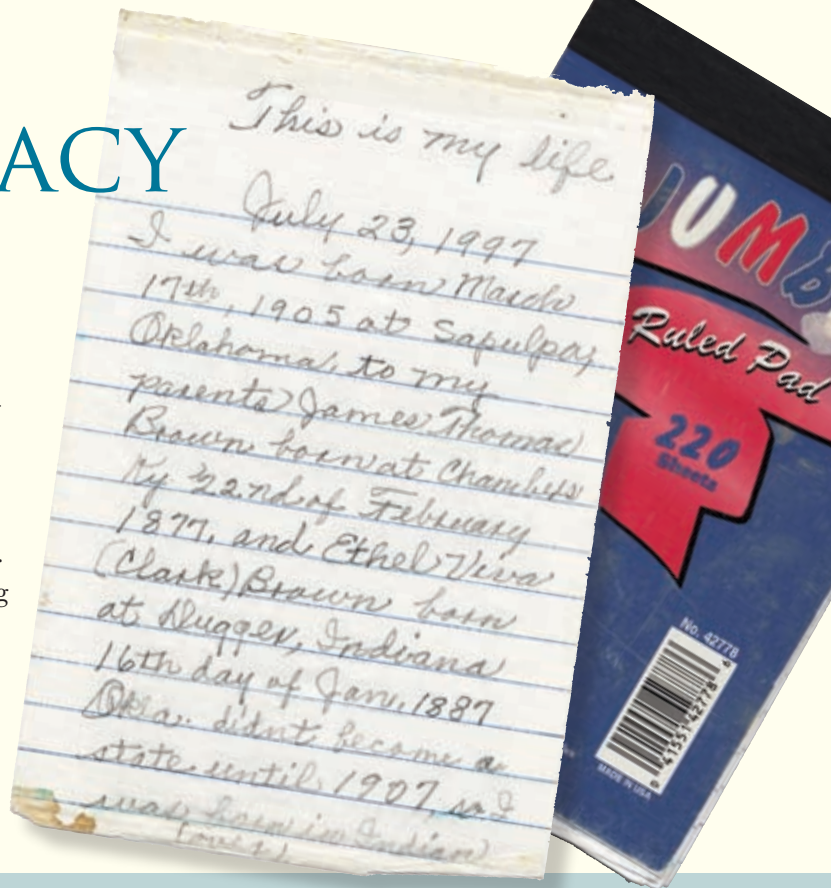 ACY
This is my life
July 23, 1997
I was born March
17th, 1905 at Sapulpa,
Oklahoma, to my
parents James Thomas
Brown born at Chambers
Ky 22nd of February
1877, and Ethel Viva
(Clark) Brown born
at Dugger, Indiana
16th day of Jan, 1887
Okla. didnt become a
state until 1907, so I
was born in Indian
(over)
g
JUMB
Ruled Pad
220
Sheets
No. 42778
MADE IN USA